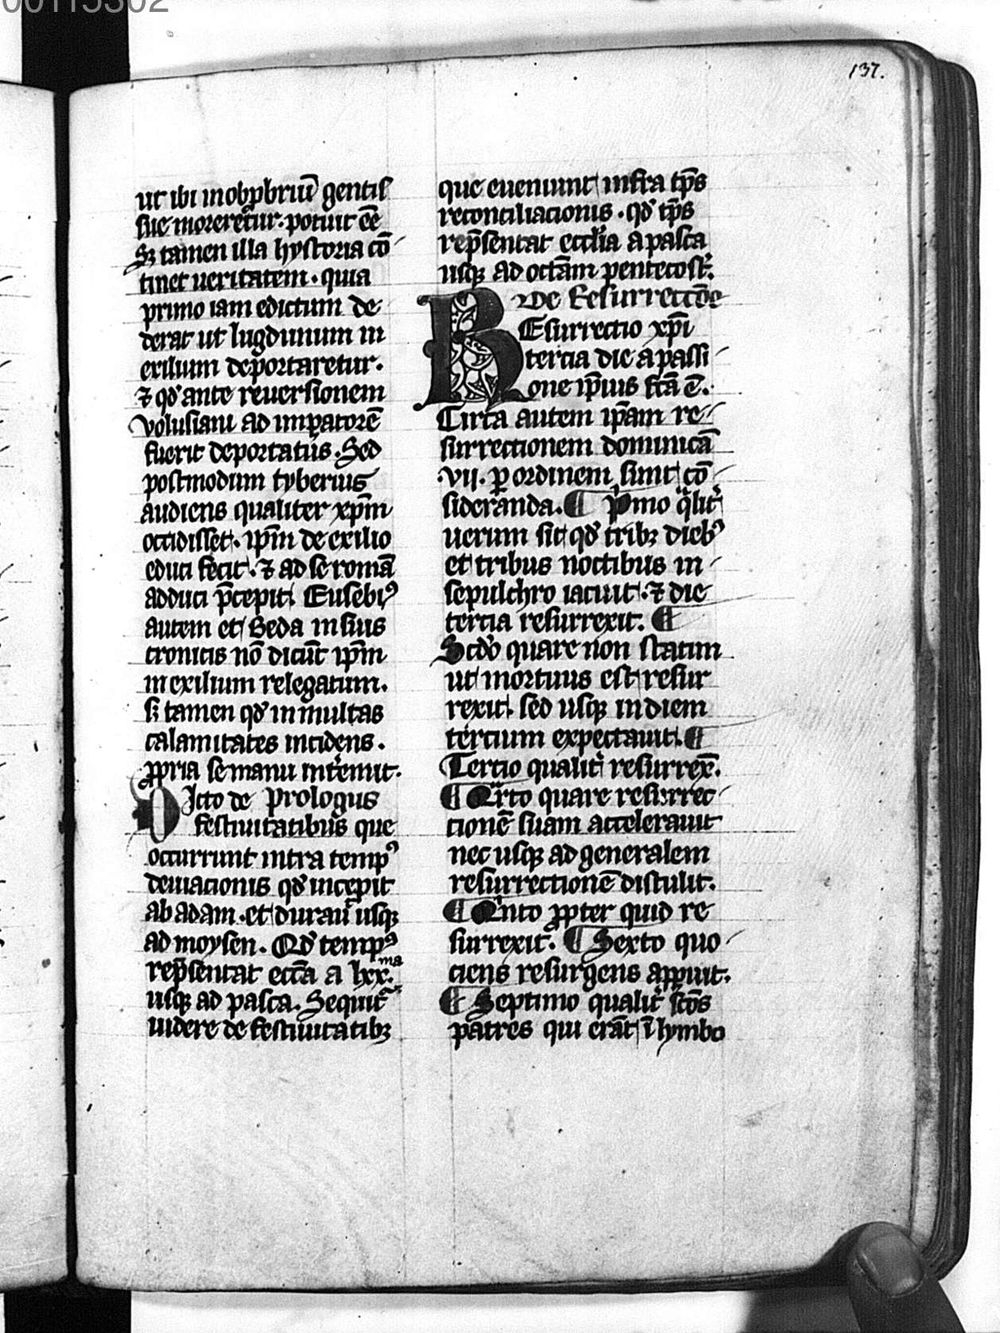 00115302
137.
ut ibi in obp̱briū gentis
sue moreretur. potuit eē
Sꝫ tamen illa hystoria cō
tinet ueritatem. quia
primo iam edictum de
derat ut lugdunum in
exilium deportaretur.
⁊ qđ ante reuersionem
volusiani ad imperatorē
fuerit deportatus. Sed
postmodum tyberius
audiens qualiter xp̄m
occidisset. ip̄m de exilio
educi fecit. ⁊ ad se romā
adduci p̄cepit. Eusebiꝰ
autem et Beda in suis
cronicis nō dicūt ip̄m
in exilium relegatum.
s̄ tamen qđ in multas
calamitates incidens.
ꝓpria se manu intemit.
Dicto de Prologus
festiuitatibus que
occurrunt intra tempꝰ
deuiacionis qđ incepit
ab adam. et durauit usqꝫ
ad moysen. Qđ tempꝰ
rep̄sentat ecc̄a a lxx.ma
usqꝫ ad pasca. Sequit᷑
uidere de festiuitatibꝫ
que eueniunt infra tp̄s
reconciliacionis. qđ tp̄s
rep̄sentat eccl̄ia a pasca
usqꝫ ad octām pentecost᷑.
De Resurrectōe
Resurrectio xp̄i
tercia die a passi
one ip̄ius fc̄a ē.
Circa autem ip̄am re
surrectionem dominicā
.vii. ꝑ ordinem sunt cō
sideranda. ¶ P̄mo q̄lit᷑
uerum sit qđ tribꝫ diebꝰ
et tribus noctibus in
sepulchro iacuit. ⁊ die
tercia resurrexit. ¶
Scd̄o quare non statim
ut mortuus est resur
rexit. sed usqꝫ in diem
tercium expectauit. ¶
Tercio qualit᷑ resurrex̄.
¶ Q̄rto quare resurrec
tionē suam accelerauit
nec usqꝫ ad generalem
resurrectionē distulit.
¶ Q̄nto ꝓpter quid re
surrexit. ¶ Sexto quo
ciens resurgens apꝑuit.
¶ Septimo qualit᷑ sc̄os
patres qui erāt ī lymbo